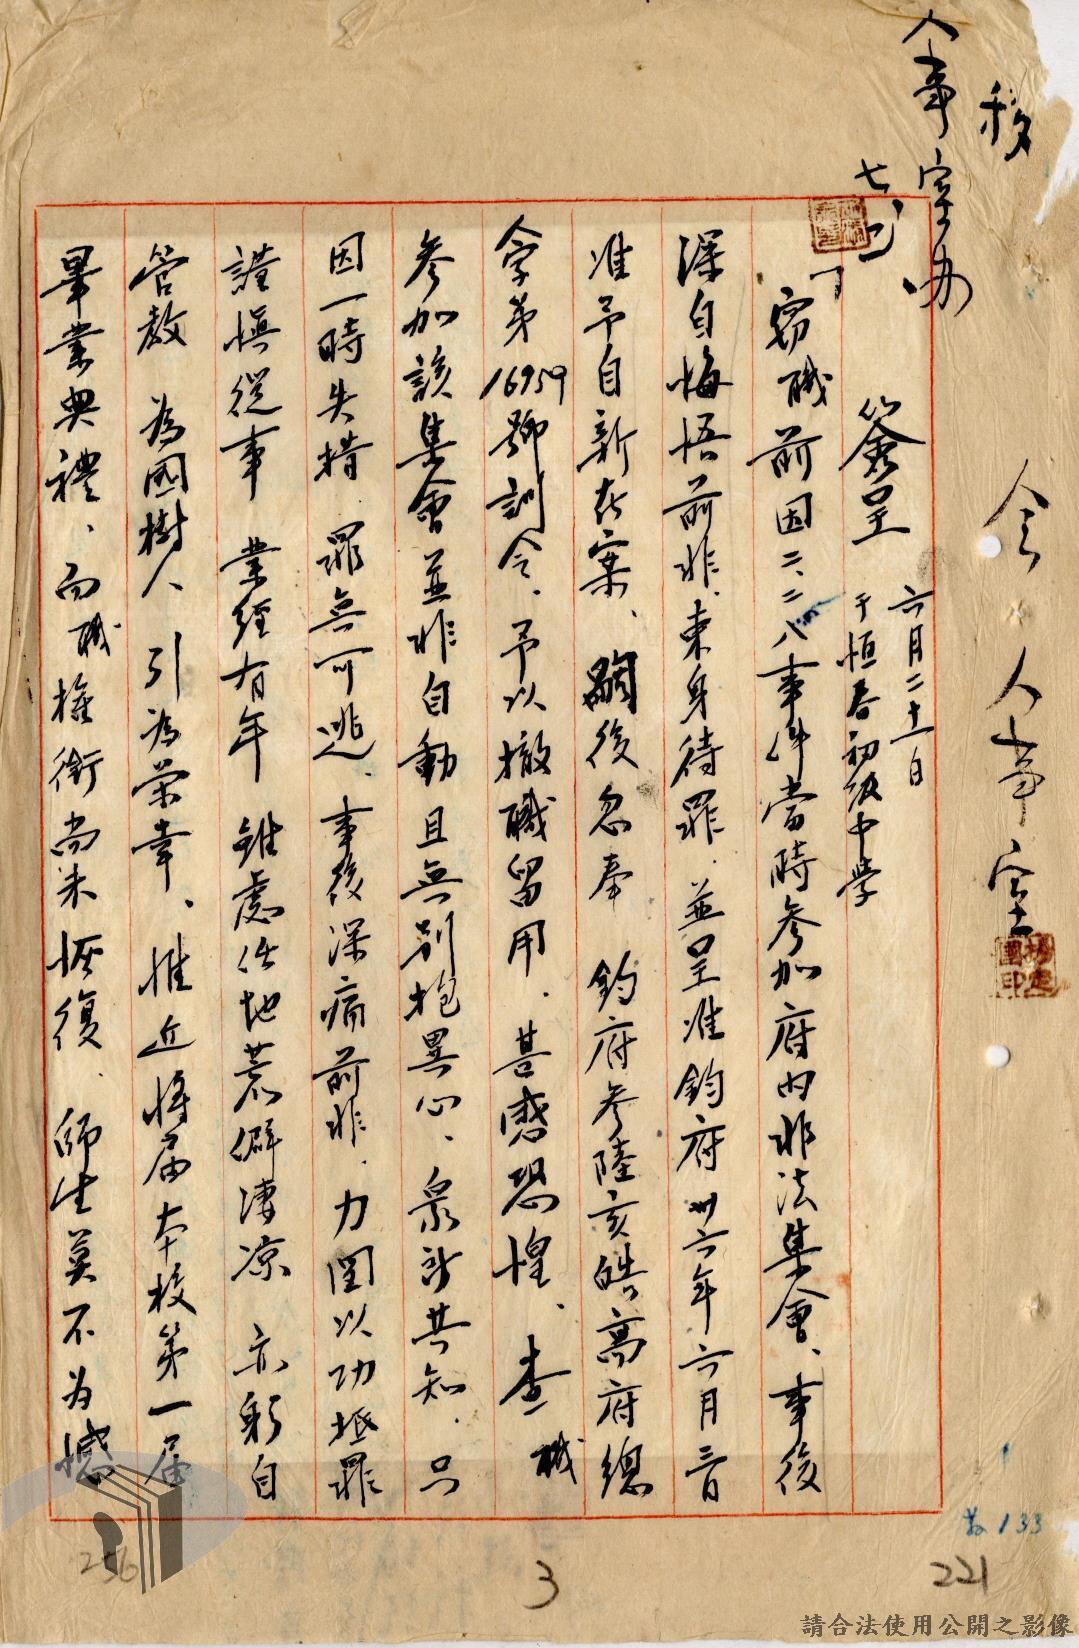 移
人事室办
七、
會 人事室
簽呈 六月二十一日
于恒春初級中學
竊職前因二、二八事件當時參加府內非法集會、事後
深自悔悟前非、束身待罪、並呈准鈞府卅六年六月三日
准予自新在案、嗣後忽奉 鈞府參陸亥皓高府總
令字第16959號訓令、予以撤職留用、甚感恐惶、查職
參加該集會並非自動且無別抱異心、眾所共知、只
因一時失措 罪無可逃、事後深痛前非、力圖以功抵罪
謹慎從事 業經有年 雖處任地荒僻淒涼 亦躬自
管教 為國樹人 引為榮幸、惟近將屆本校第一屆
畢業典禮、而職權銜尚未恢復、師生莫不為憾
教133
256
3
221
請合法使用公開之影像